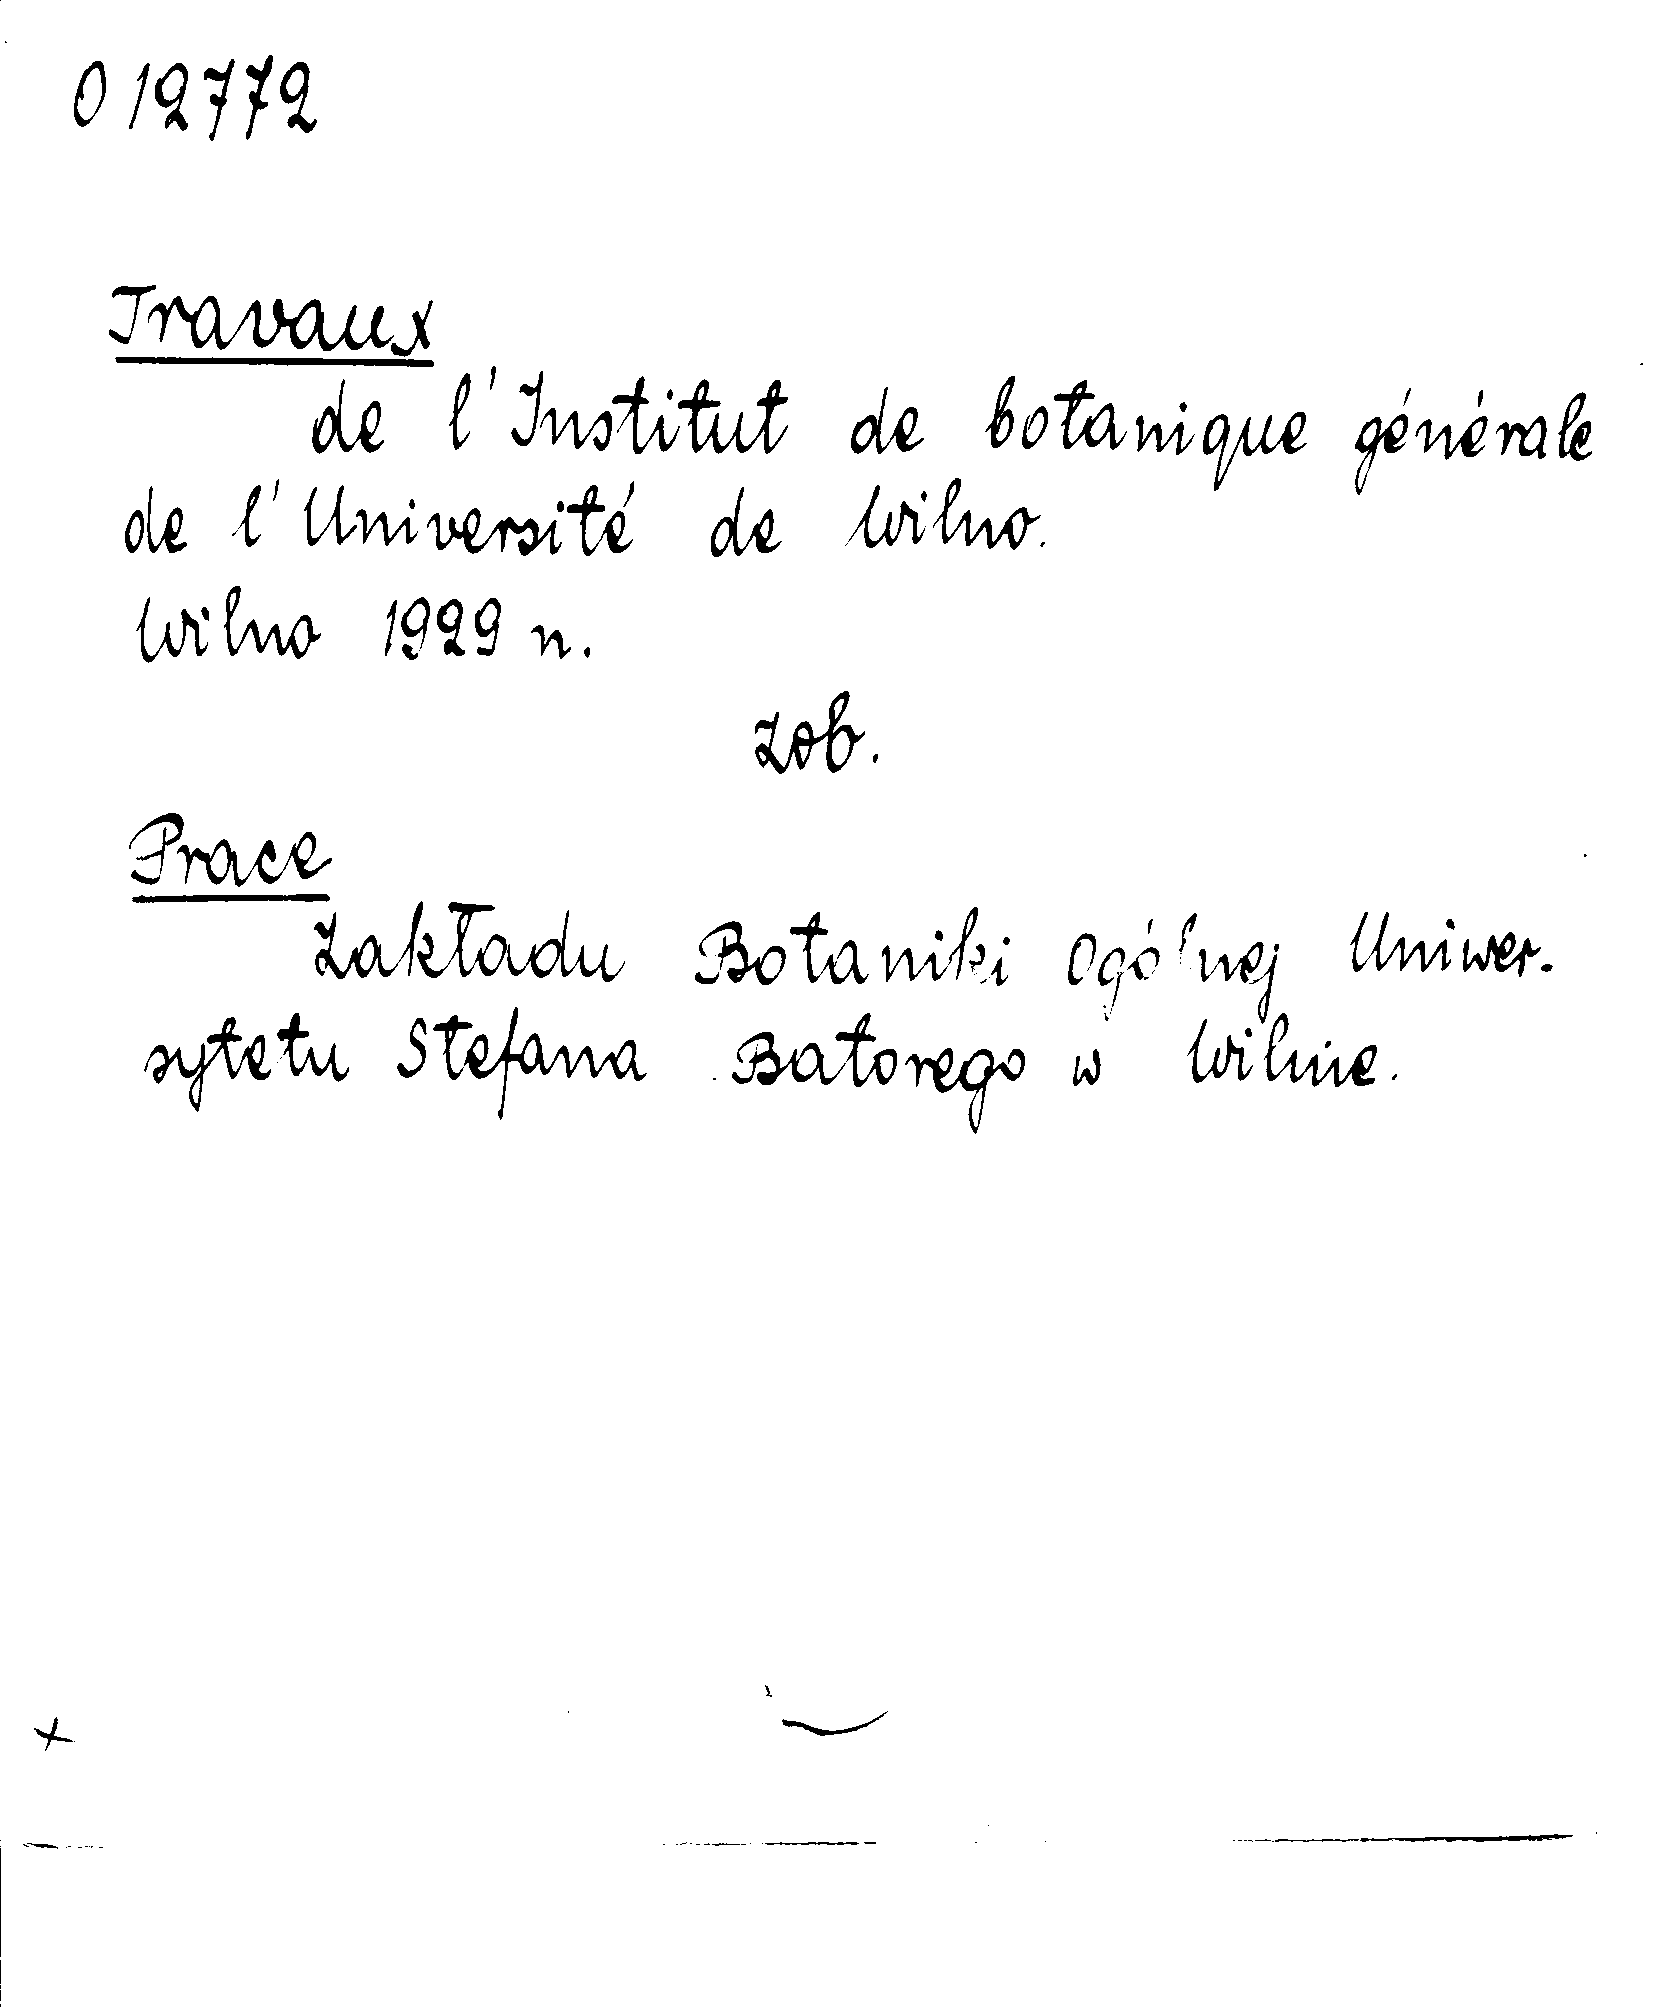 0 12772
Travaux
de l'Institut de botanique générale
de l'Université de Wilno.
Wilno 1929 n.
zob.
Prace
Zakładu Botaniki Ogólnej Uniwer-
sytetu Stefana Batorego w Wilnie.